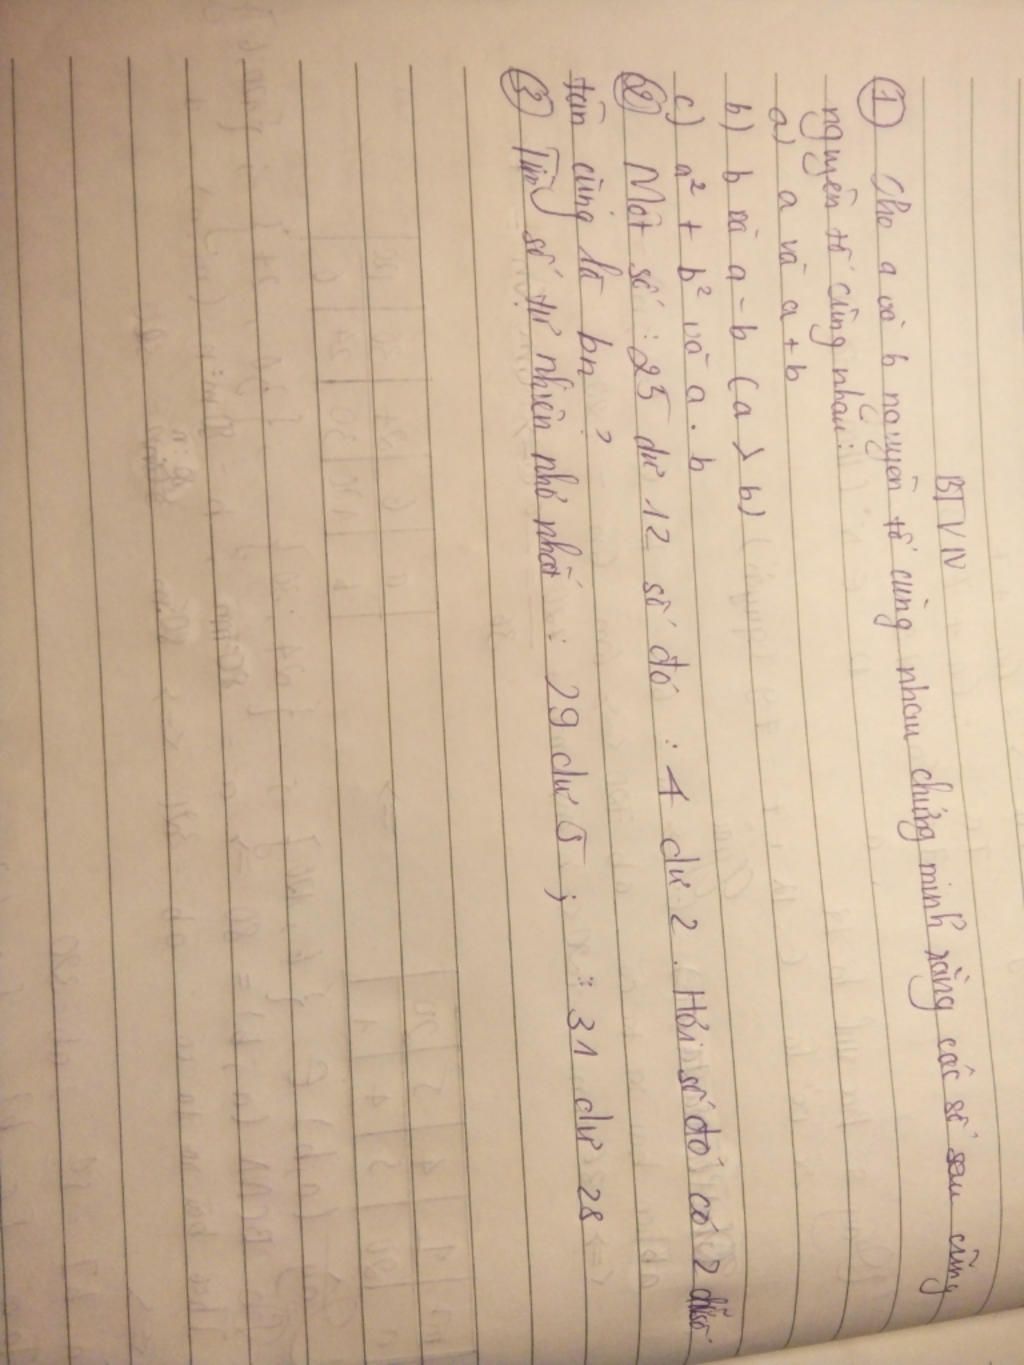 BTVN
① Cho a và b nguyên tố cùng nhau chứng minh rằng các số sau cũng
nguyên tố cùng nhau:
a) a và a + b
b) b và a - b (a > b)
c) a² + b² và a . b
② Một số : 25 dư 12 số đó : 4 dư 2. Hỏi số đó có 2 chữ số
tận cùng là bn?
③ Tìm số tự nhiên nhỏ nhất : 29 dư 5 ; : 31 dư 28